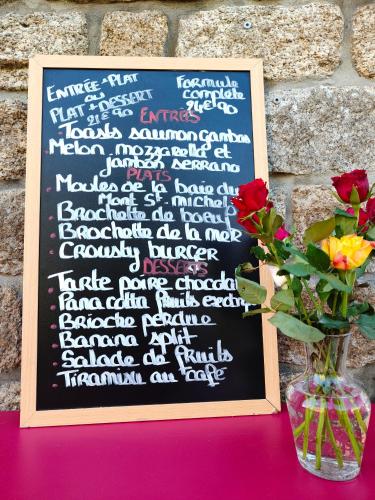 ENTRÉE + PLAT
ou
PLAT + DESSERT
21€90
FORMULE
complète
24€90
ENTRÉES
Toasts saumon Gambas
Melon, mozzarella et
jambon serrano
PLATS
Moules de la baie du
Mont St-michel
Brochette de boeuf
Brochette de la mer
Crousty burger
DESSERTS
Tarte poire chocolat
Pana cotta fruits exotic
Brioche perdue
Banana split
Salade de fruits
Tiramisu au café